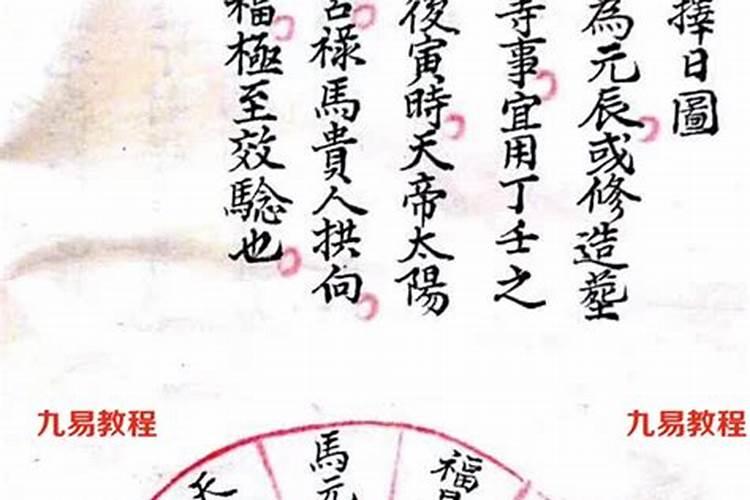 擇日圖
為元辰或修造塟
寺事宜用丁壬之
後寅時天帝太陽
祿馬貴人拱向
福極至效騐也
九易教程
九易教程
馬元
福
天